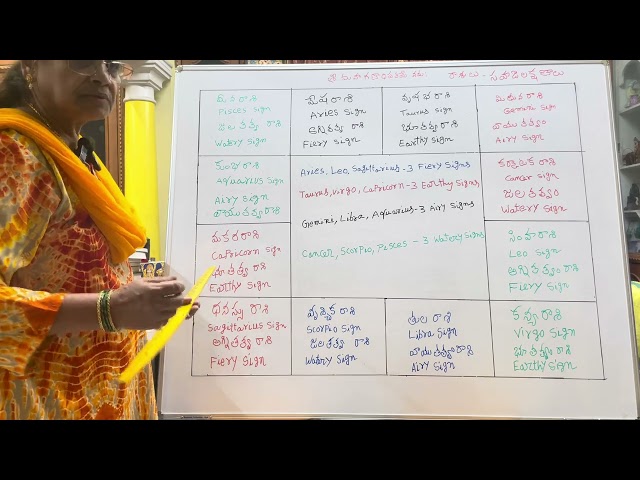 రాశులు - సహజలక్షణాలు
మీన రాశి
Pisces Sign
జల తత్వ రాశి
Watery Sign
మేష రాశి
Aries Sign
అగ్నితత్వ రాశి
Fiery Sign
వృషభ రాశి
Taurus Sign
భూతత్వ రాశి
Earthy Sign
మిథున రాశి
Gemini Sign
వాయుతత్వం
Airy Sign
కుంభ రాశి
Aquarius Sign
Airy Sign
వాయుతత్వ రాశి
Aries, Leo, Sagittarius - 3 Fiery Signs
Taurus, Virgo, Capricorn - 3 Earthy Signs,
Gemini, Libra, Aquarius - 3 Airy Signs
Cancer, Scorpio, Pisces - 3 Watery Signs
కర్కాటక రాశి
Cancer Sign
జలతత్వం
Watery Sign
మకర రాశి
Capricorn Sign
భూతత్వ రాశి
Earthy Sign
సింహరాశి
Leo Sign
అగ్నితత్వం రాశి
Fiery Sign
ధనస్సు రాశి
Sagittarius Sign
అగ్నితత్వ రాశి
Fiery Sign
వృశ్చిక రాశి
Scorpio Sign
జలతత్వ రాశి
Watery Sign
తుల రాశి
Libra Sign
వాయుతత్వరాశి
Airy Sign
కన్య రాశి
Virgo Sign
భూతత్వం రాశి
Earthy Sign